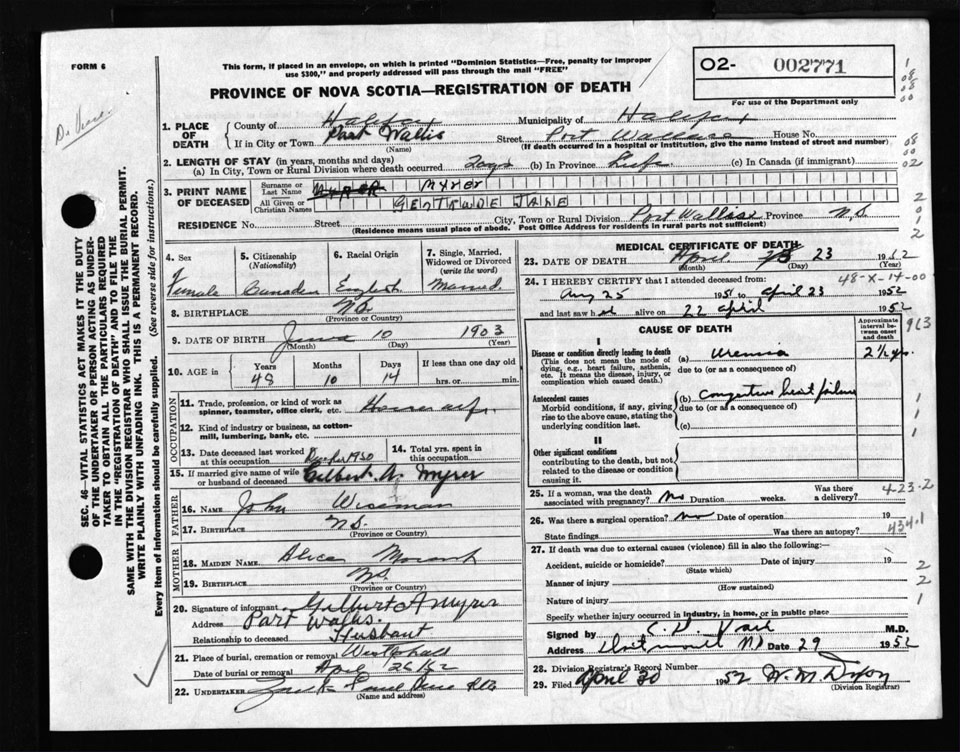 FORM 6
This form, if placed in an envelope, on which is printed "Dominion Statistics—Free, penalty for improper
use $300," and properly addressed will pass through the mail "FREE"
PROVINCE OF NOVA SCOTIA—REGISTRATION OF DEATH
O2- 002771
For use of the Department only
1. PLACE OF DEATH
County of Halifax Municipality of Halifax
If in City or Town Port Wallis Street Port Wallace House No.
(Name) (If death occurred in a hospital or institution, give the name instead of street and number)
2. LENGTH OF STAY (in years, months and days)
(a) In City, Town or Rural Division where death occurred (b) In Province Life (c) In Canada (if immigrant)
3. PRINT NAME OF DECEASED
Surname or Last Name MYRER
All Given or Christian Names GERTRUDE JANE
RESIDENCE No. Street City, Town or Rural Division Port Wallise Province N.S.
(Residence means usual place of abode. Post Office Address for residents in rural parts not sufficient)
4. Sex Female
5. Citizenship (Nationality) Canadian
6. Racial Origin English
7. Single, Married, Widowed or Divorced (write the word) Married
8. BIRTHPLACE N.S.
(Province or Country)
9. DATE OF BIRTH June 10 1903
(Month) (Day) (Year)
10. AGE in Years 48 Months 10 Days 14 If less than one day old hrs. or min.
OCCUPATION
11. Trade, profession, or kind of work as spinner, teamster, office clerk, etc. Housewife
12. Kind of industry or business, as cotton-mill, lumbering, bank, etc.
13. Date deceased last worked at this occupation 1950
14. Total yrs. spent in this occupation
15. If married give name of wife or husband of deceased Gilbert A. Myrer
FATHER
16. NAME John Wiseman
17. BIRTHPLACE N.S.
(Province or Country)
MOTHER
18. MAIDEN NAME Alice
19. BIRTHPLACE N.S.
(Province or Country)
20. Signature of informant Gilbert A Myrer
Address Port Wallis.
Relationship to deceased Husbant
21. Place of burial, cremation or removal Westphall
Date of burial or removal April 26/52
22. UNDERTAKER
(Name and address)
MEDICAL CERTIFICATE OF DEATH
23. DATE OF DEATH April 23 1952
(Month) (Day) (Year)
24. I HEREBY CERTIFY that I attended deceased from:
48-X-14-00
Aug 25 1951 to April 23 1952
and last saw h er alive on 22 April 1952
CAUSE OF DEATH
Approximate interval between onset and death
963
I
Disease or condition directly leading to death (a) uremia 2½ yrs.
(This does not mean the mode of dying, e.g., heart failure, asthenia, etc. It means the disease, injury, or complication which caused death.)
due to (or as a consequence of)
Antecedent causes (b) congestive heart failure
Morbid conditions, if any, giving rise to the above cause, stating the underlying condition last.
due to (or as a consequence of)
(c)
II
Other significant conditions
contributing to the death, but not related to the disease or condition causing it.
25. If a woman, was the death associated with pregnancy? No Duration weeks. Was there a delivery?
423-2
26. Was there a surgical operation? No Date of operation 19
State findings Was there an autopsy?
434.1
27. If death was due to external causes (violence) fill in also the following:
Accident, suicide or homicide? Date of injury 19
(State which)
Manner of injury
(How sustained)
Nature of injury
Specify whether injury occurred in industry, in home, or in public place
Signed by M.D.
Address Dartmouth NS Date 29 1952
28. Division Registrar's Record Number
29. Filed April 30 1952 W. M. Dixon
(Division Registrar)
SEC. 46—VITAL STATISTICS ACT MAKES IT THE DUTY
OF THE UNDERTAKER OR PERSON ACTING AS UNDER-
TAKER TO OBTAIN ALL THE PARTICULARS REQUIRED
IN THE "REGISTRATION OF DEATH" AND TO FILE THE
SAME WITH THE DIVISION REGISTRAR WHO SHALL ISSUE THE BURIAL PERMIT.
WRITE PLAINLY WITH UNFADING INK. THIS IS A PERMANENT RECORD.
Every item of information should be carefully supplied. (See reverse side for instructions.)